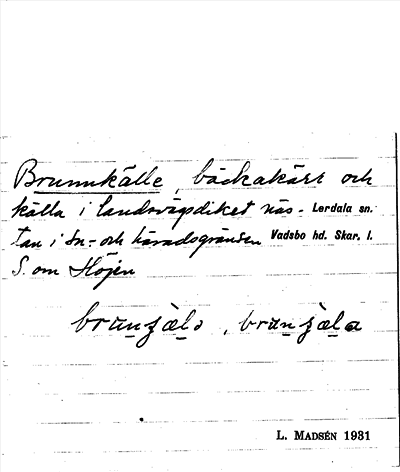 Brunnkälle, bäckakärr och
källa i landsvägsdiket näs- Lerdala sn.
tan i sn- och häradsgränsen Vadsbo hd. Skar. l.
S. om Höjen
L. MADSÉN 1931